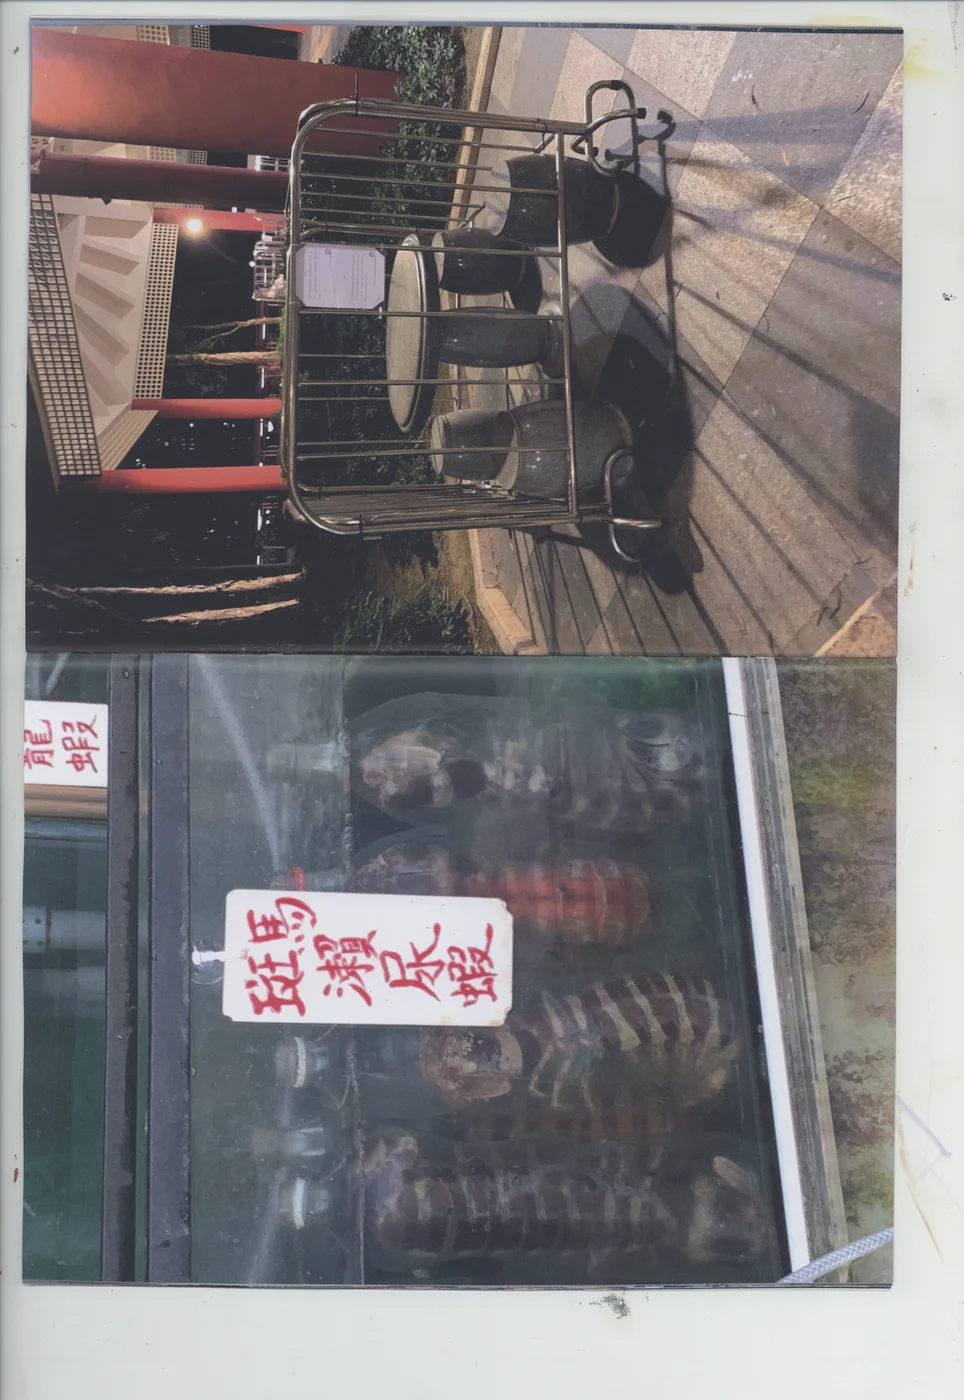 龍蝦
斑馬
瀨尿蝦